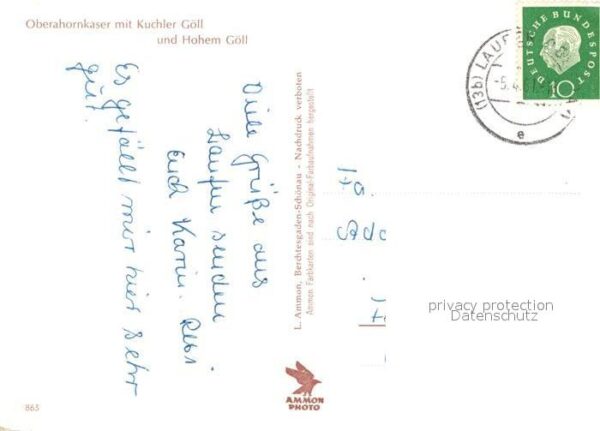 Oberahornkaser mit Kuchler Göll
und Hohem Göll
Viele Grüße aus
Laufen senden
euch Karin.
Es gefällt mir hier sehr
gut!
L. Ammon, Berchtesgaden-Schönau - Nachdruck verboten
Ammon Farbkarten sind nach Original-Farbaufnahmen hergestellt
AMMON
PHOTO
863
DEUTSCHE BUNDESPOST
10
(13b) LAUF
-5.4.61
e
privacy protection
Datenschutz